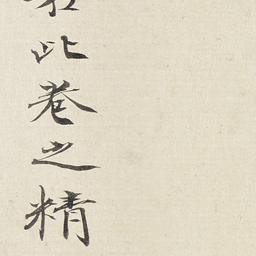 此卷之精